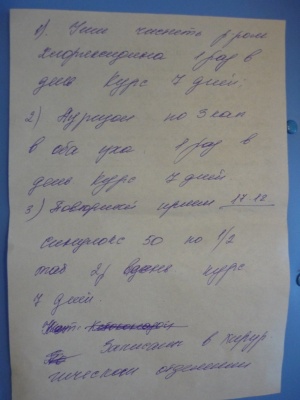 1). Уши чистить р-ром
Хлоргексидина 1 раз в
день Курс 7 дней;
2) Ауризон по 3 кап
в оба уха 1 раз в
день Курс 7 дней
3) Повторный прием 17.12
синулокс 50 по 1/2
таб 2 р в день курс
7 дней.
Записаны в хирур
гическом отделении